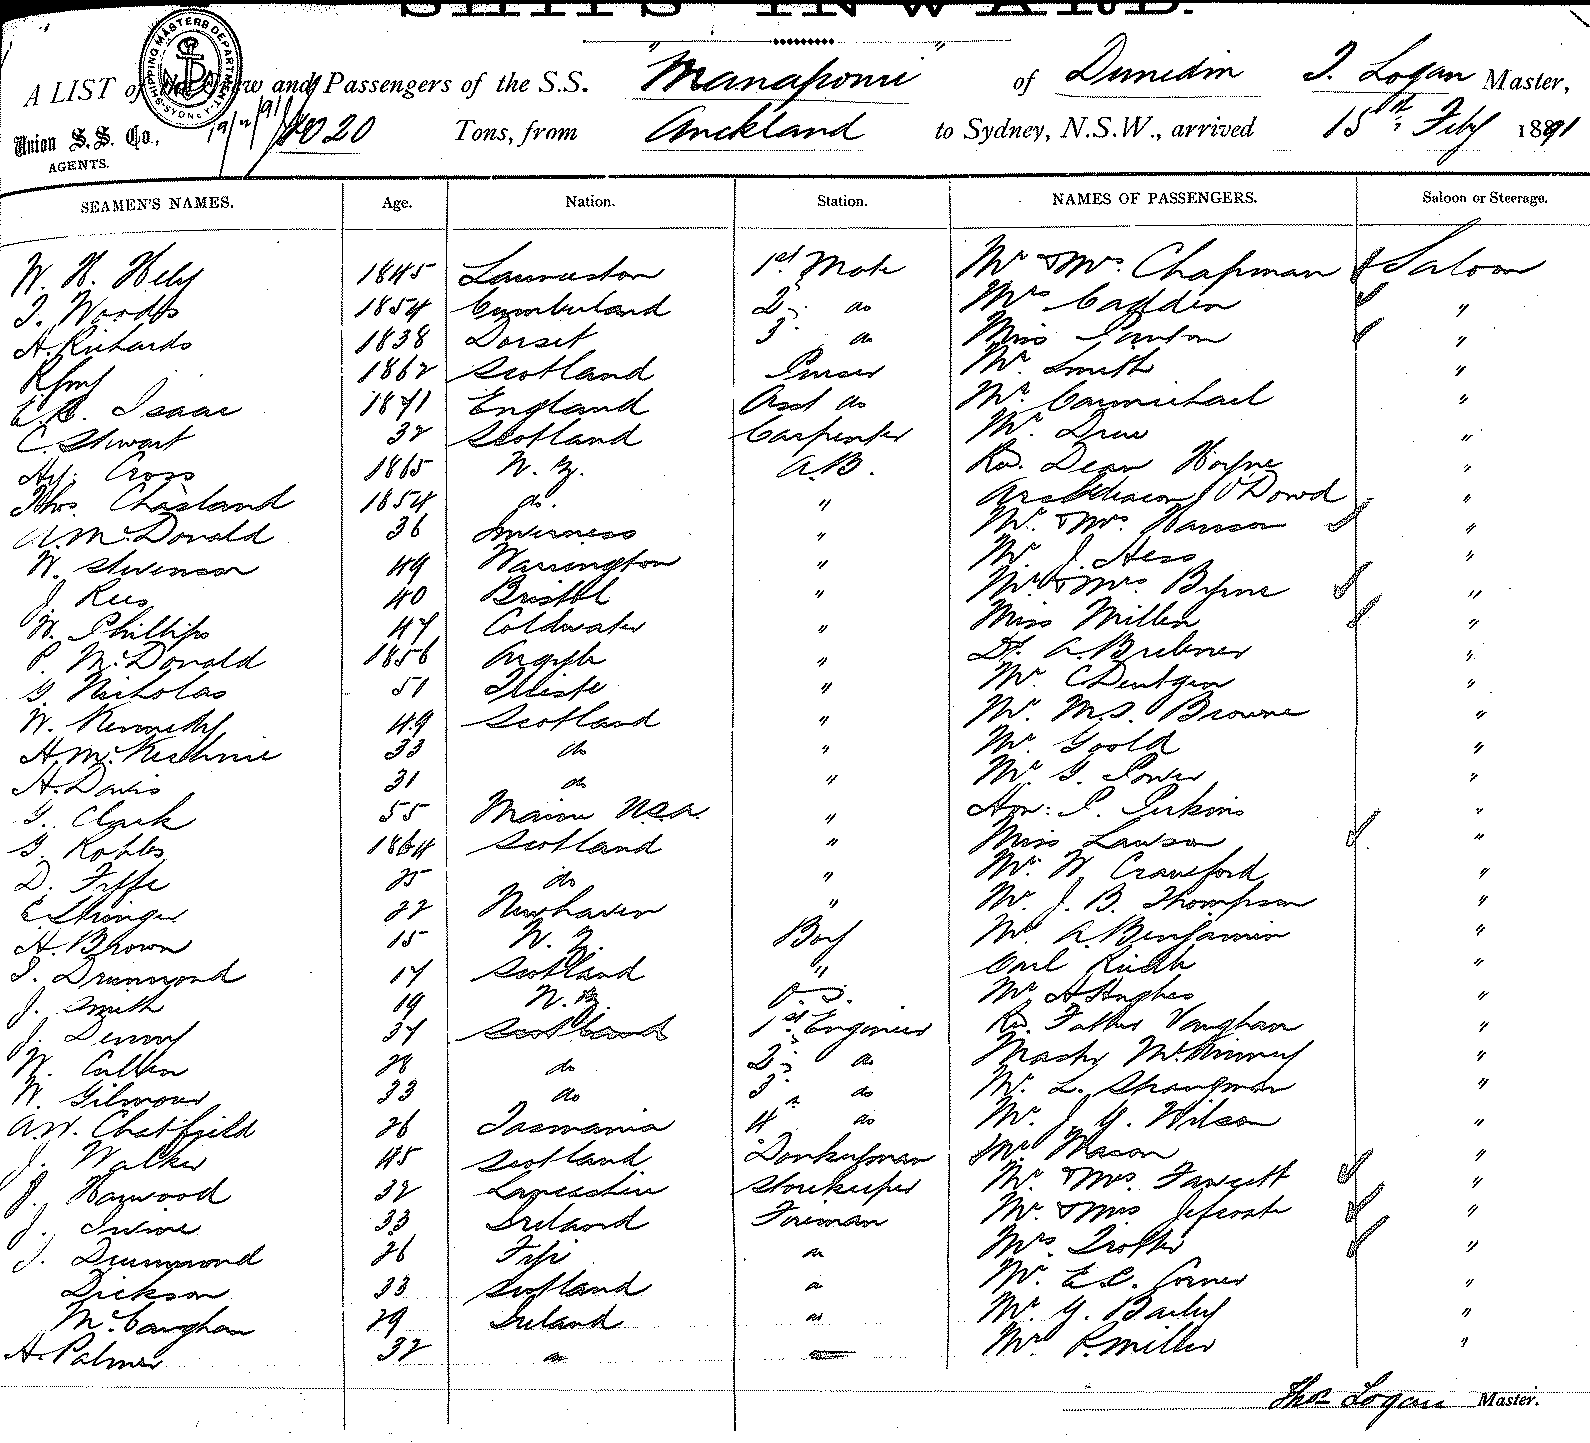 SHIPS INWARD.
SHIPPING MASTERS DEPARTMENT SYDNEY
A LIST of the Crew and Passengers of the S.S. Manapouri of Dunedin T. Logan Master,
Union S.S. Co., AGENTS. 1020 Tons, from Auckland to Sydney, N.S.W., arrived 15th Feby 1891
SEAMEN'S NAMES. Age. Nation. Station. NAMES OF PASSENGERS. Saloon or Steerage.
W. H. Hely 1845 Launceston 1st Mate Mr & Mrs Chapman Saloon
T. Woods 1854 Cumberland 2 do Mrs "
A. Richards 1838 Dorset 3 do Miss "
1862 Scotland Purser Mr Smith "
Isaac 1871 England Asst do Mr Carmichael "
C. Stewart 32 Scotland Carpenter Mr Drew "
Cross 1865 N.Z. A.B. Rev. Dean "
Thos. Chasland 1854 do. " Archdeacon O'Dowd "
A. McDonald 36 Inverness " Mr. & Mrs. Hanson "
W. Stevenson 49 Warrington " Mr. J. Hess "
J. Rees 40 Bristol " Mr. & Mrs Byrne "
W. Phillips 47 Coldwater " Miss "
P. McDonald 1856 Argyle " Dr. A. "
G. Nicholas 51 Trieste " Mr. C "
W. 49 Scotland " Mr. M.S. Browne "
A. McKechnie 33 do " Mr. Goold "
A. Davis 31 do " Mr G. Power "
G. Clark 55 Maine U.S.A. " Hon: P. Perkins "
G. 1864 Scotland " Miss Lawson "
D. Fyffe 25 do " Mr. W. Crawford "
E. Stringer 22 Newhaven " Mr. J. B. Thompson "
A. Brown 15 N.Z. Boy Mr A Benjamin "
T. Drummond 17 Scotland " Carl "
J. Smith 19 N.Z. O.S. Mr A Hughes "
J. Denny 37 Scotland 1st Engineer Rev. Father Vaughan "
W. 28 do 2 do McKinney "
W. Gilmour 33 do 3 do Mr. L. "
A.W. Chatfield 26 Tasmania 4 do Mr. J. G. Wilson "
J. Walker 45 Scotland Donkeyman Mr Mason "
J. Harwood 32 Lancashire Storekeeper Mr. & Mrs. Fawcett "
J. Irvine 33 Ireland Fireman Mr. & Mrs "
J. Drummond 26 Fiji do Mrs Trotter "
Dickson 33 Scotland do Mr. E.L. Corner "
McCaughan 29 Ireland do Mr G. Bailey "
A. Palmer 32 do Mr P. Miller "
Thos Logan Master.